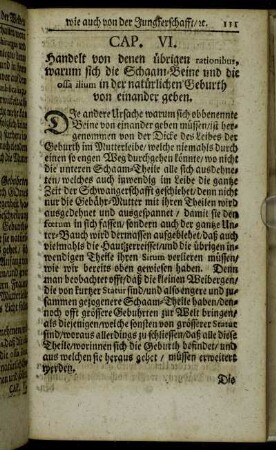 wie auch von der Jungkerschafft/ꝛc. 111
CAP. VI.
Handelt von denen übrigen rationibus,
warum sich die Schaam-Beine und die
ossa ilium in der natürlichen Geburth
von einander geben.
Die andere Ursache warum sich obbenennte
Beine von einander geben müssen/ist her-
genommen von der Dicke des Leibes der
Geburth im Mutterleibe/ welche niemahls durch
einen so engen Weg durchgehen könnte/ wo nicht
die unteren Schaam-Theile alle sich ausdehne-
ten/ welches auch inwendig im Leibe die ganze
Zeit der Schwangerschafft geschiehet/ denn nicht
nur die Gebähr-Mutter mit ihren Theilen wird
ausgedehnet und ausgespannet / damit sie den
fœtum in sich fassen/ sondern auch der gantze Un-
ter-Bauch wird dermassen aufgeblehet/ daß auch
vielmahls die Haut zerreisset/ und die übrigen in-
wendigen Theile ihren situm verlieren müssen/
wie wir bereits oben gewiesen haben. Denn
man beobachtet offt/daß die kleinen Weibergen/
die von kurtzer Statur sind/ und also engere und zu-
sammen gezogene Schaam-Theile haben/den-
noch offt grössere Gebuhrten zur Welt bringen/
als diejenigen/welche sonsten von grösserer Statur
sind/woraus allerdings zu schliessen/ daß alle diese
Theile/worinnen sich die Geburth befindet/ und
aus welchen sie heraus gehet / müssen erweitert
werden.
Die